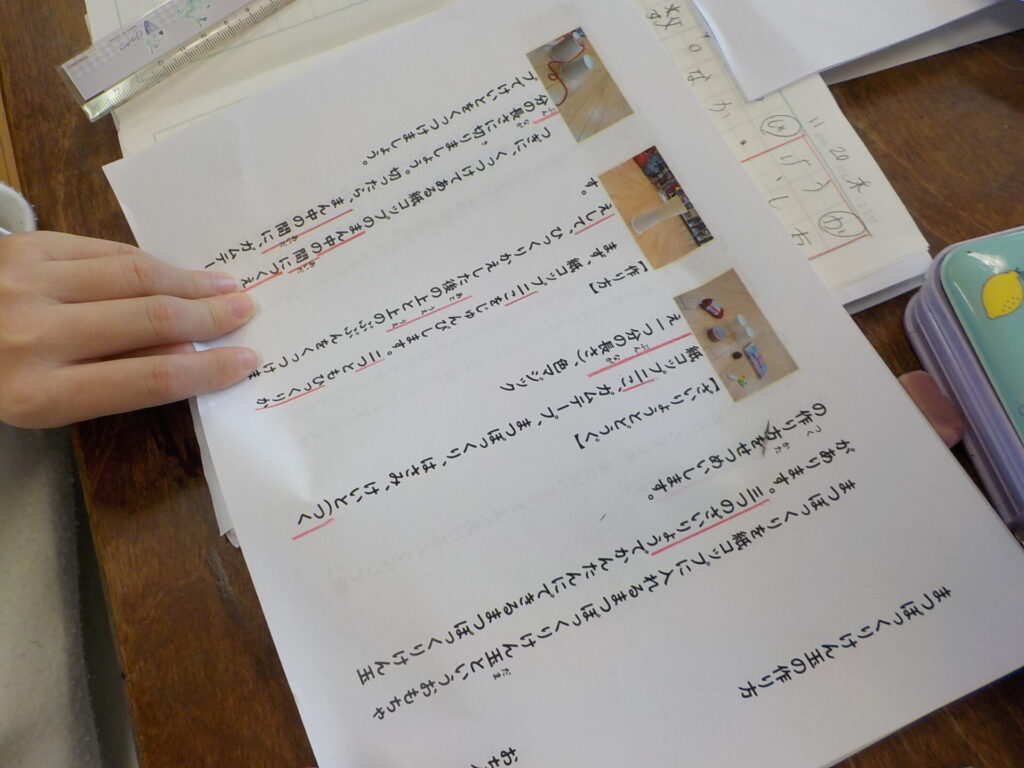 まつぼっくりけん玉の作り方
まつぼっくりを紙コップに入れるまつぼっくりけん玉というおもちゃ
があります。三つのざいりょうでかんたんにできるまつぼっくりけん玉
の作り方をせつめいします。
【ざいりょうとどうぐ】
紙コップ二こ、ガムテープ、まつぼっくり、はさみ、けいと(つく
え一つ分の長さ)、色マジック
【作り方】
まず、紙コップ二こをじゅんびします。二つともひっくりか
えして、ひっくりかえした後の上と上のぶぶんをくっつけま
す。
つぎに、くっつけてある紙コップのまん中の間につくえ
分の長さに切りましょう。切ったら、まん中の間に、ガムテー
プでけいとをくっつけましょう。